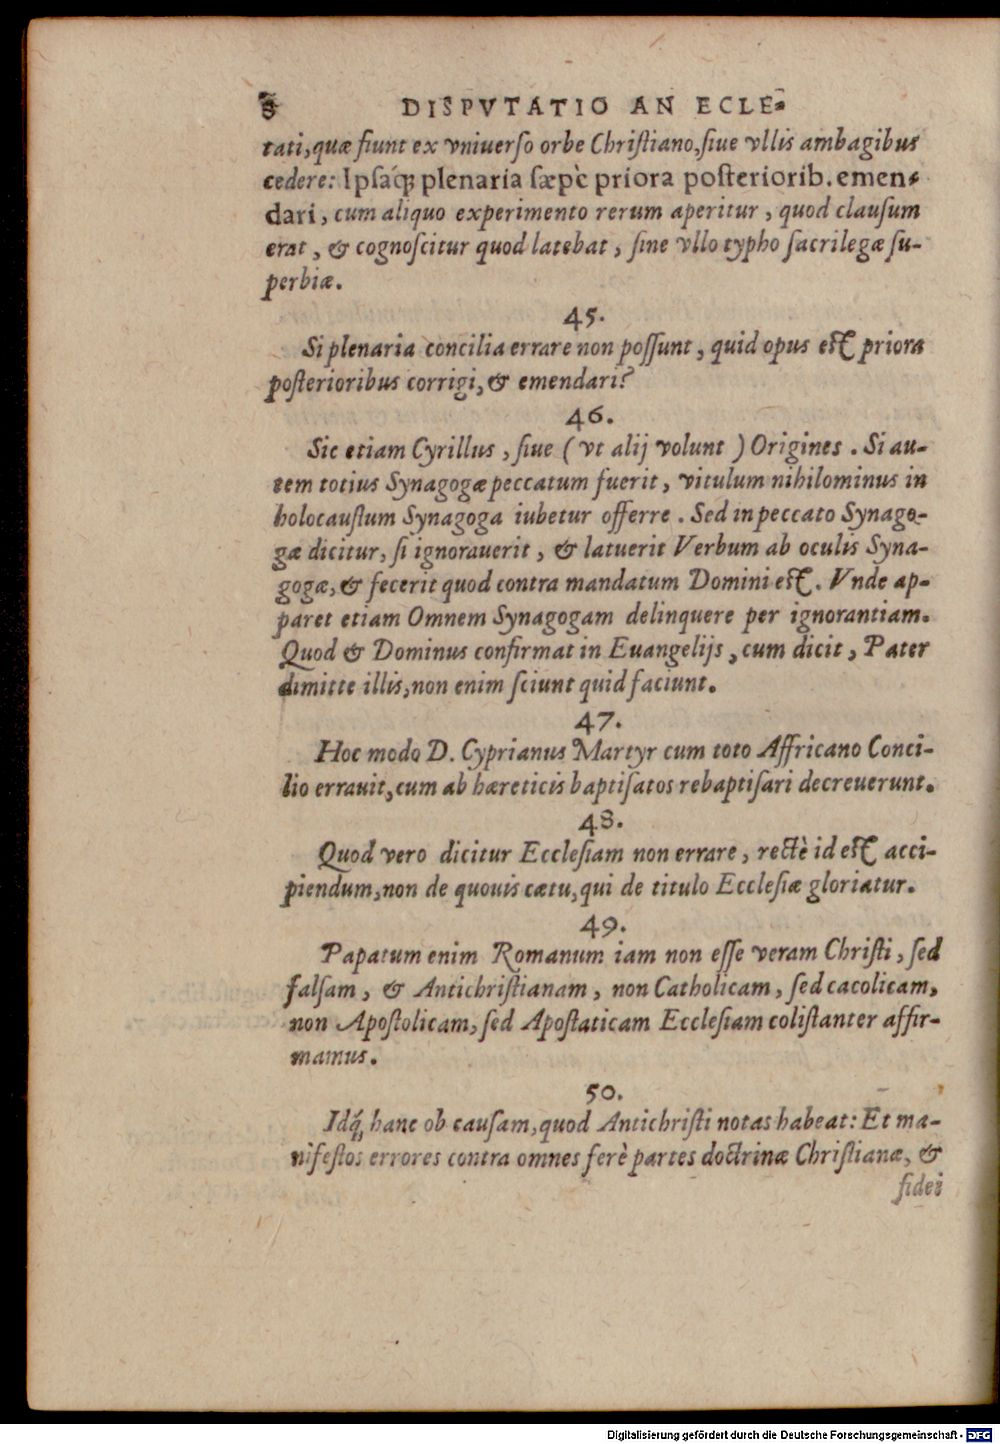 8 DISPVTATIO AN ECLE-
tati, quæ fiunt ex vniuerſo orbe Chriſtiano, ſiue vllis ambagibus
cedere: Ipſaq́; plenaria ſæpè priora poſteriorib. emen-
dari, cum aliquo experimento rerum aperitur, quod clauſum
erat, & cognoſcitur quod latebat, ſine vllo typho ſacrilegæ ſu-
perbiæ.
45.
Si plenaria concilia errare non poſſunt, quid opus eſt priora
poſterioribus corrigi, & emendari?
46.
Sic etiam Cyrillus, ſiue (vt alij volunt) Origines. Si au-
tem totius Synagogæ peccatum fuerit, vitulum nihilominus in
holocauſtum Synagoga iubetur offerre. Sed in peccato Synago-
gæ dicitur, ſi ignorauerit, & latuerit Verbum ab oculis Syna-
gogæ, & fecerit quod contra mandatum Domini eſt. Vnde ap-
paret etiam Omnem Synagogam delinquere per ignorantiam.
Quod & Dominus confirmat in Euangelijs, cum dicit, Pater
dimitte illis, non enim ſciunt quid faciunt.
47.
Hoc modo D. Cyprianus Martyr cum toto Affricano Conci-
lio errauit, cum ab hæreticis baptiſatos rebaptiſari decreuerunt.
48.
Quod vero dicitur Eccleſiam non errare, rectè id eſt acci-
piendum, non de quouis cætu, qui de titulo Eccleſiæ gloriatur.
49.
Papatum enim Romanum iam non eſſe veram Chriſti, ſed
falſam, & Antichriſtianam, non Catholicam, ſed cacolicam,
non Apoſtolicam, ſed Apoſtaticam Eccleſiam coliſtanter affir-
mamus.
50.
Idq́; hanc ob cauſam, quod Antichriſti notas habeat: Et ma-
nifeſtos errores contra omnes ferè partes doctrinæ Chriſtianæ, &
fidei
Digitalisierung gefördert durch die Deutsche Forschungsgemeinschaft - DFG